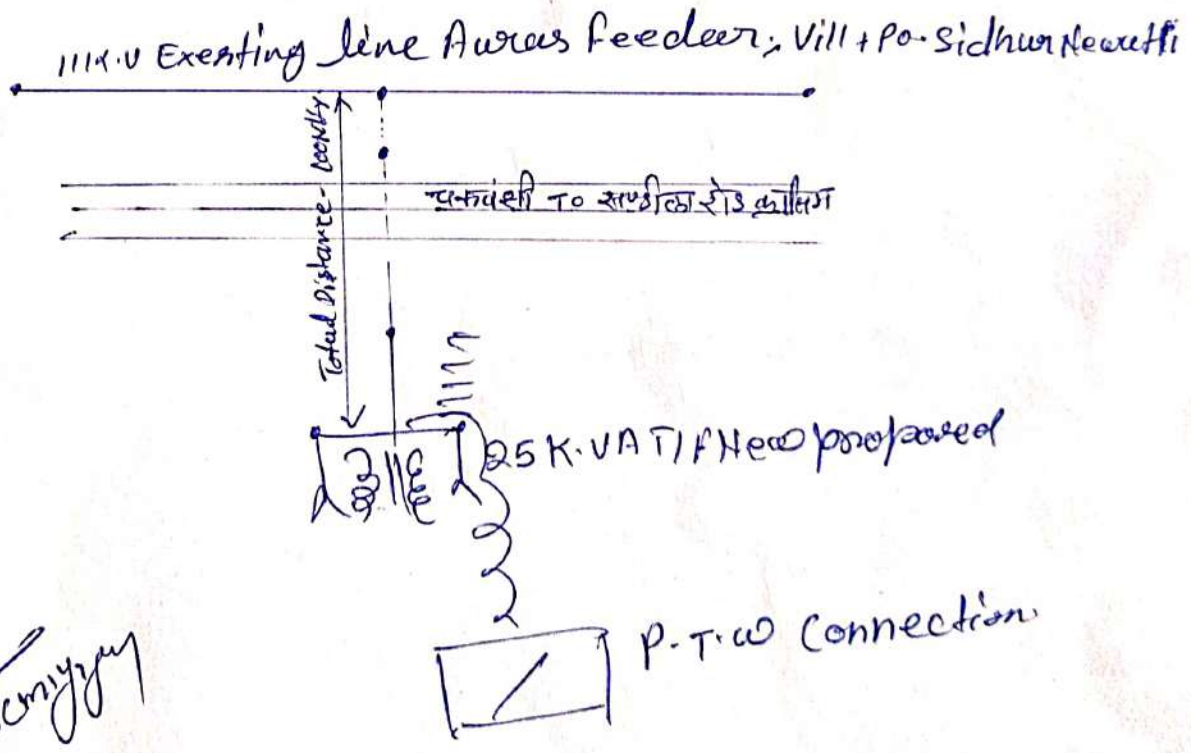 11K.V Exesting line Auras feeder, Vill + Po- Sidhur Newutti
Total Distance-
चकवंशी To सण्डीला रोड
25 K.VA T/F New proposed
P.T.W Connection